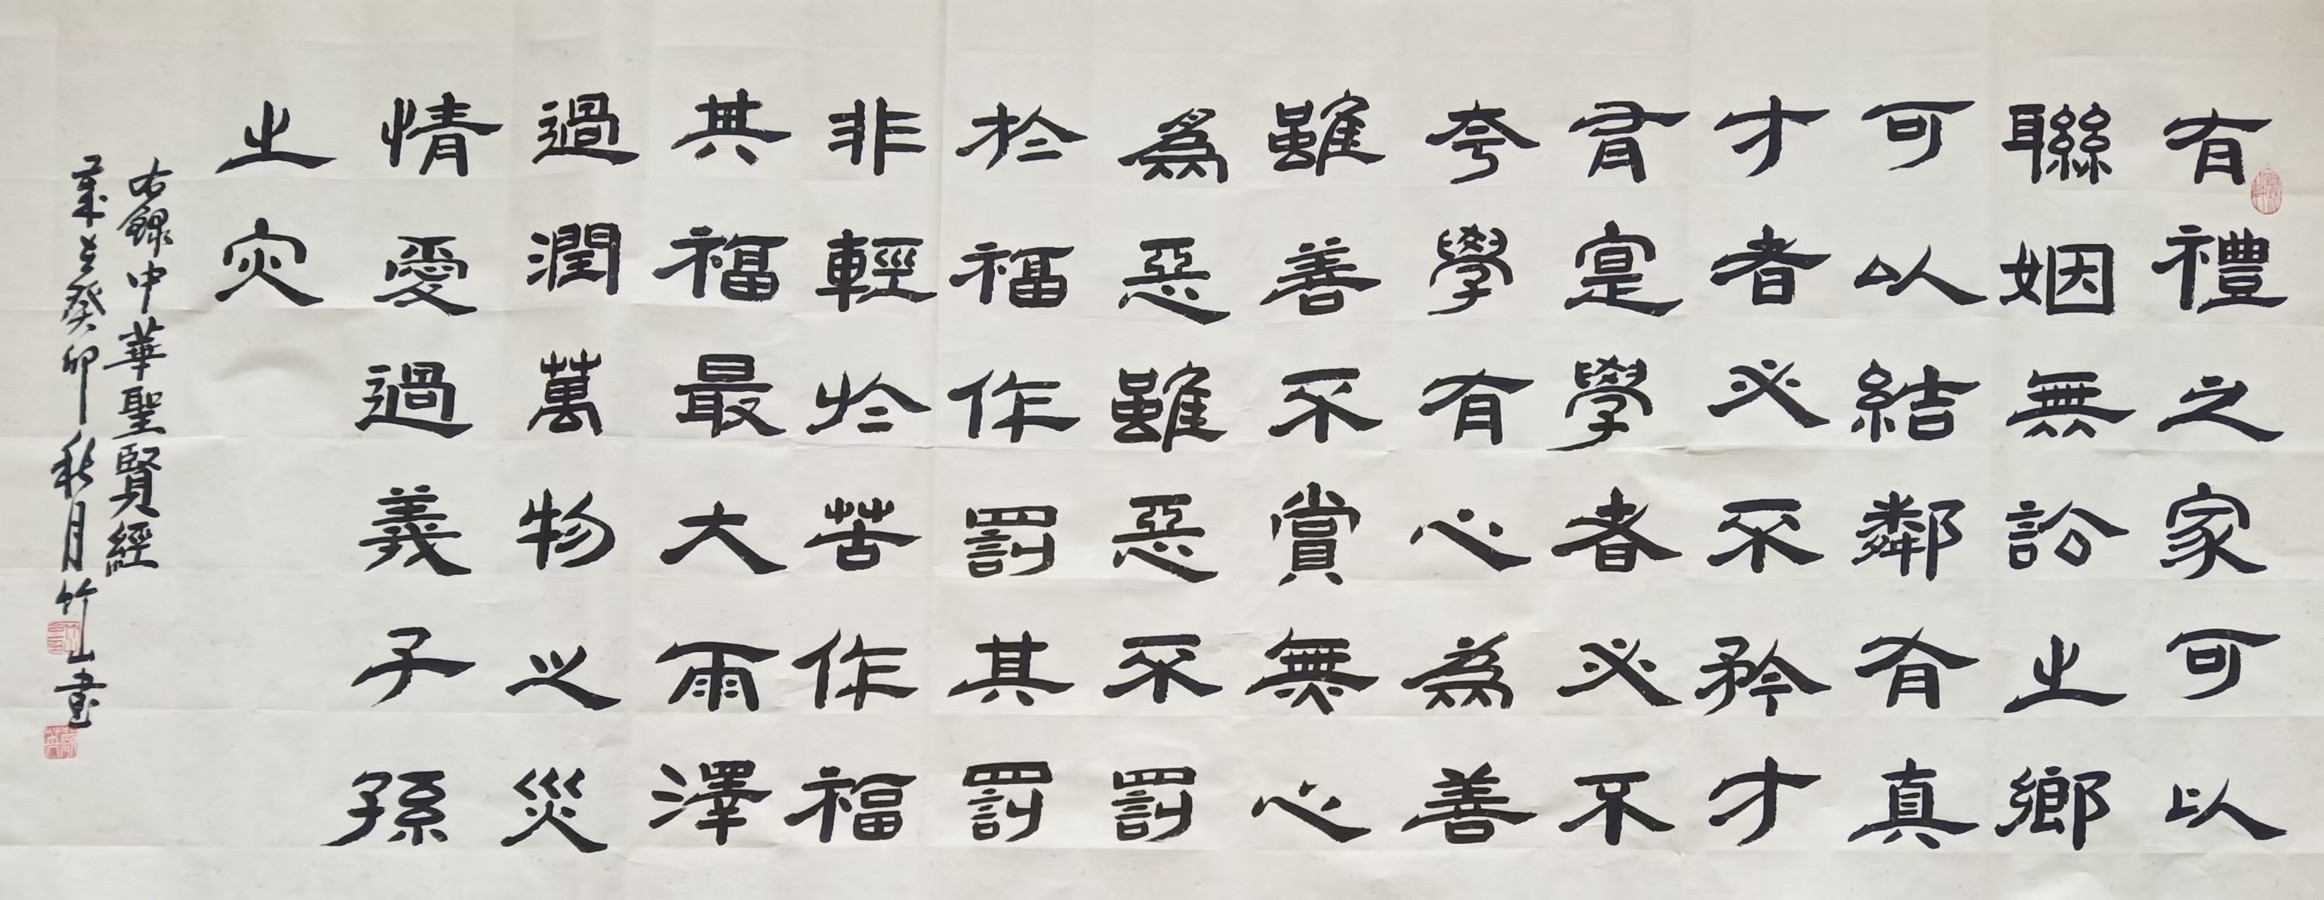 有禮之家可以
聯姻無訟之鄉
可以結鄰有真
才者必不矜才
有寔學者必不
夸學有心為善
雖善不賞無心
為惡雖惡不罰
於福作罰其罰
非輕於苦作福
其福最大雨澤
過潤萬物之災
情愛過義子孫
之灾
右錄中華聖賢經
歲癸卯秋月竹山書